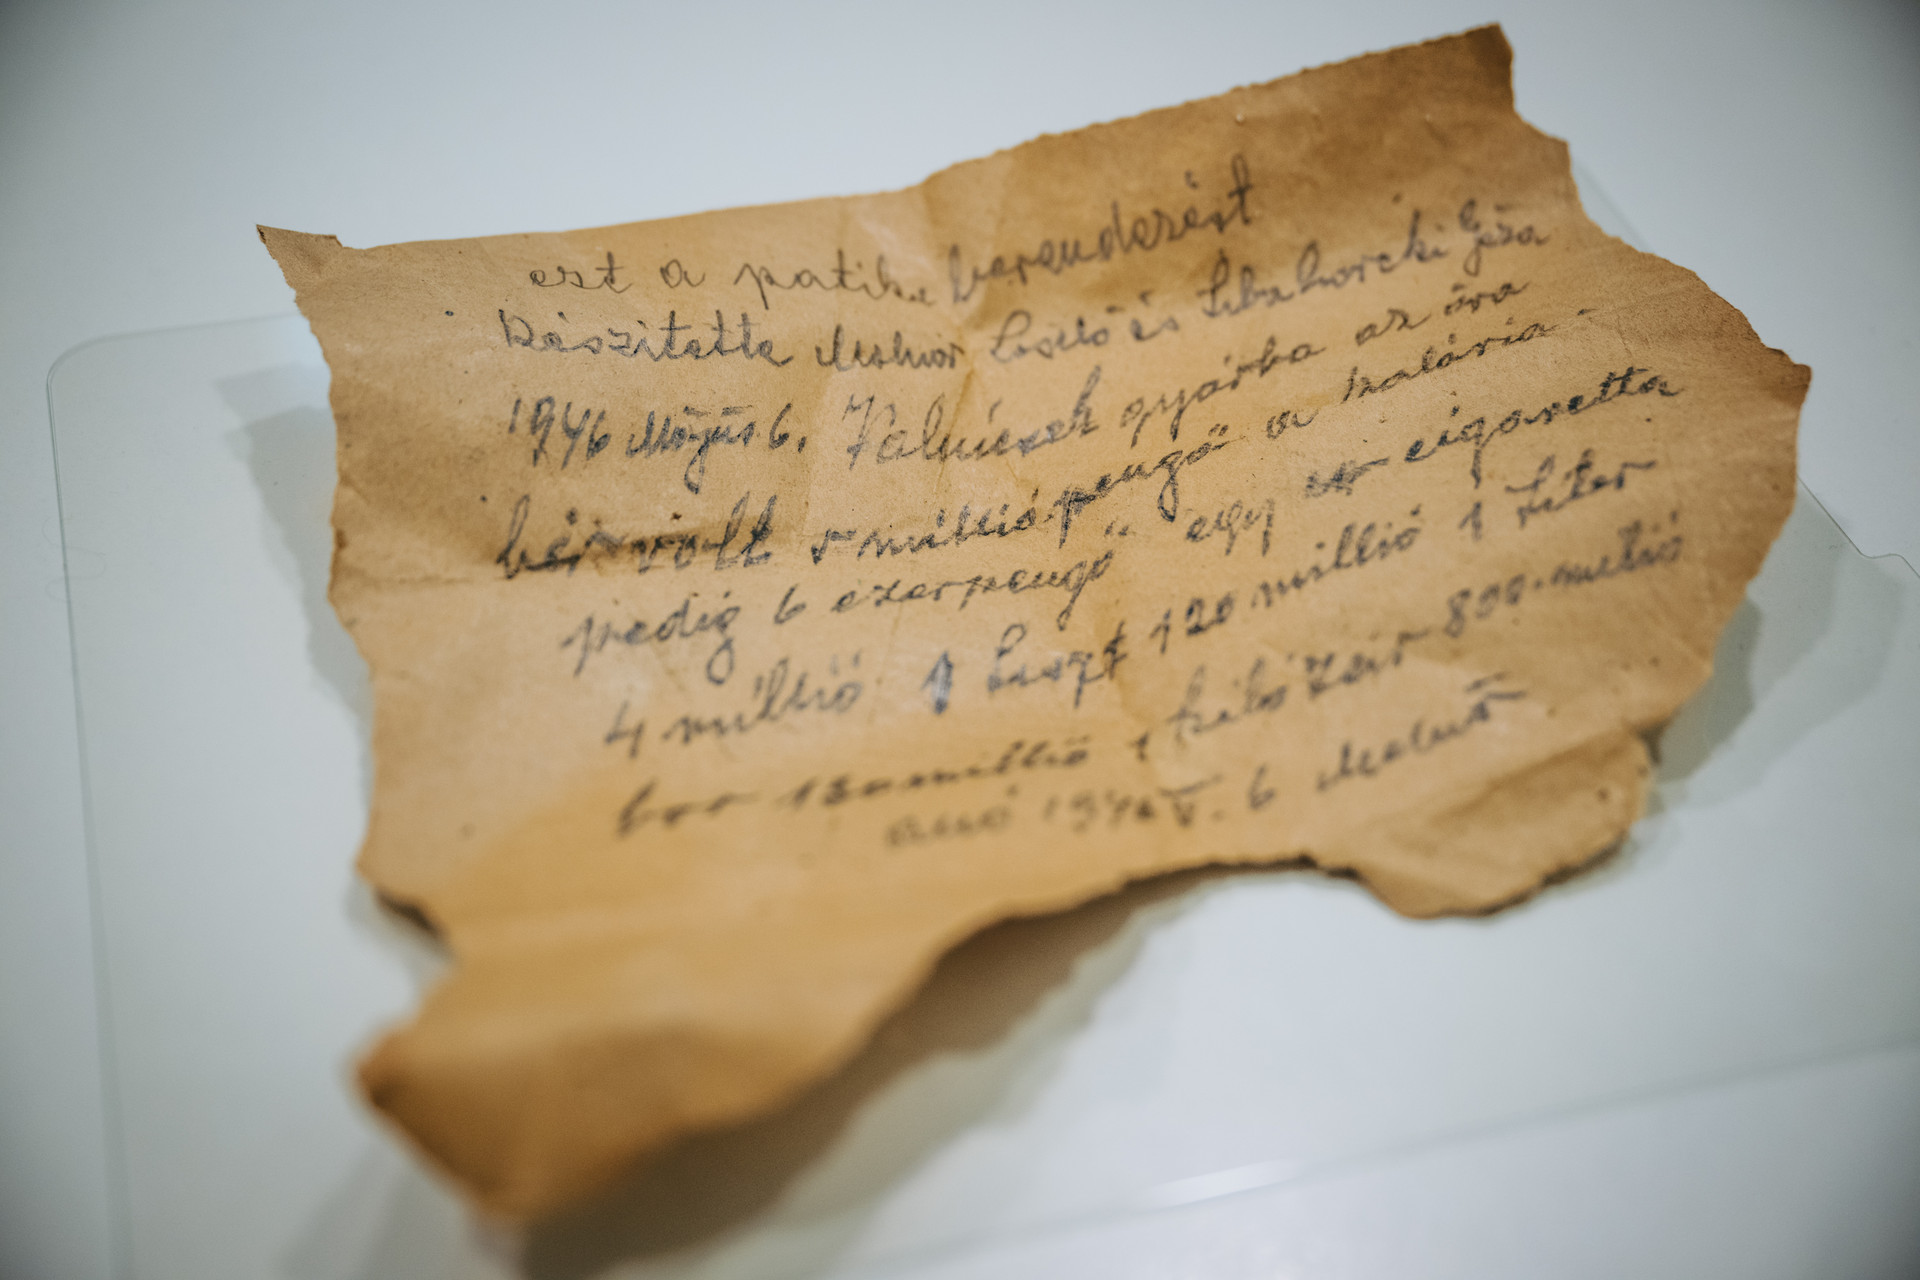 ezt a patika berendezést
készitette Molnár László és Géza
1946 Május 6. gyárba az óra
bér volt 5 millió pengő a kalória-
pedig 6 ezerpengő egy cigaretta
4 millió 1 Liszt 120 millió 1 Liter
bor 130 millió 1 kiló zsír 800 millió
1946 V. 6 Molnár